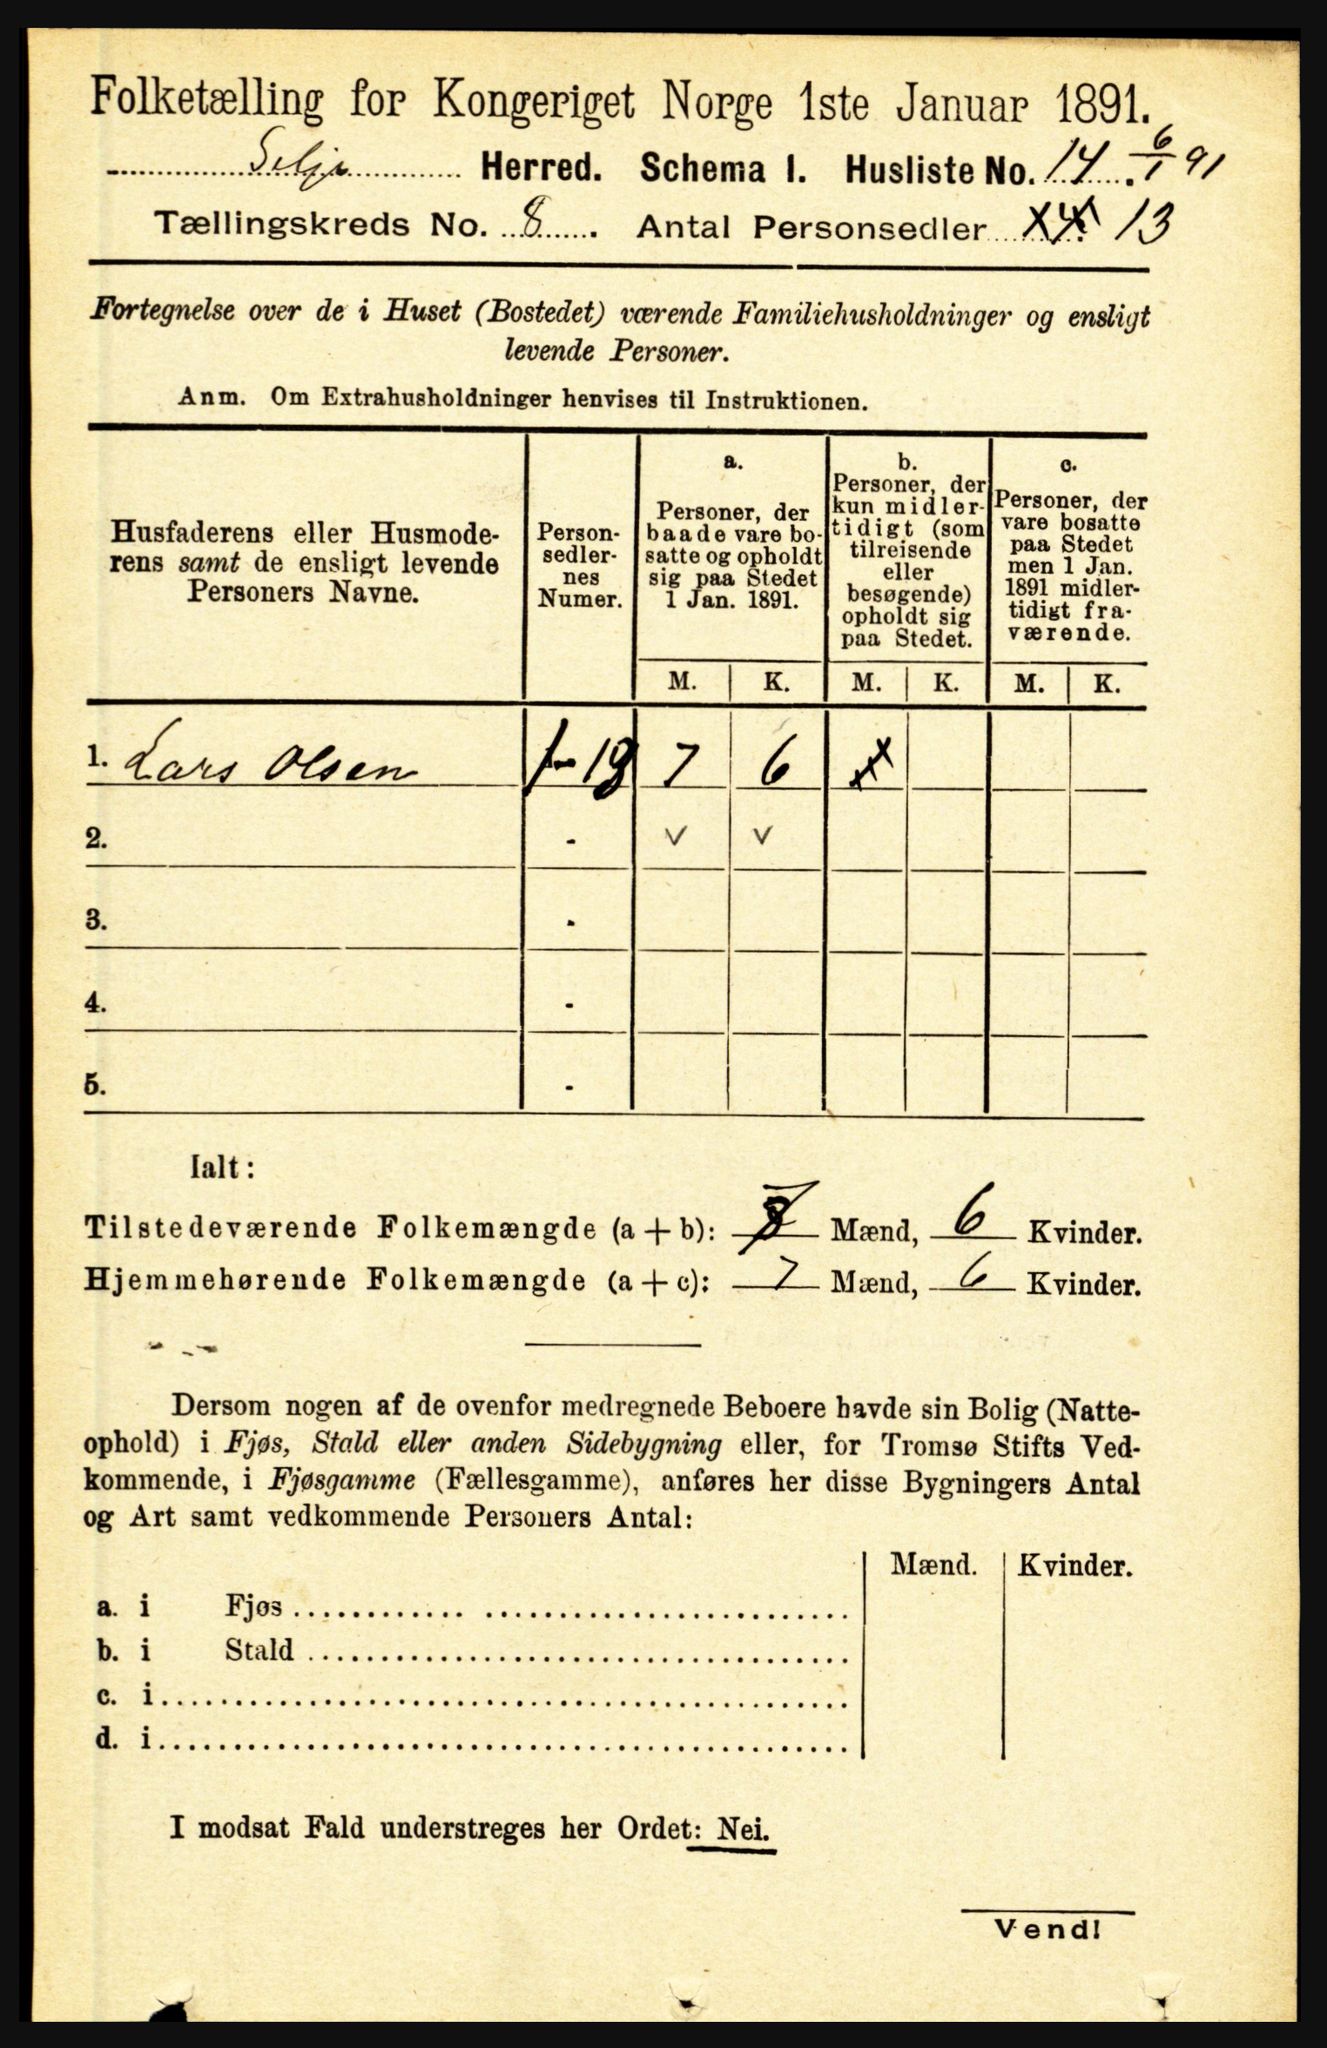 Folketælling for Kongeriget Norge 1ste Januar 1891.
Selje Herred. Schema I. Husliste No. 14. 6/1 91
Tællingskreds No. 8. Antal Personsedler 14 13
Fortegnelse over de i Huset (Bostedet) værende Familiehusholdninger og ensligt
levende Personer.
Anm. Om Extrahusholdninger henvises til Instruktionen.
Husfaderens eller Husmode-
rens samt de ensligt levende
Personers Navne.
Person-
sedler-
nes
Numer.
a.
Personer, der
baade vare bo-
satte og opholdt
sig paa Stedet
1 Jan. 1891.
b.
Personer, der
kun midler-
tidigt (som
tilreisende
eller
besøgende)
opholdt sig
paa Stedet.
c.
Personer, der
vare bosatte
paa Stedet
men 1 Jan.
1891 midler-
tidigt fra-
værende.
M. K. M. K. M. K.
1. Lars Olsen 1 - 13 7 6
2. - v v
3. -
4. -
5. -
Ialt:
Tilstedeværende Folkemængde (a + b): 7 Mænd, 6 Kvinder.
Hjemmehørende Folkemængde (a + c): 7 Mænd, 6 Kvinder.
Dersom nogen af de ovenfor medregnede Beboere havde sin Bolig (Natte-
ophold) i Fjøs, Stald eller anden Sidebygning eller, for Tromsø Stifts Ved-
kommende, i Fjøsgamme (Fællesgamme), anføres her disse Bygningers Antal
og Art samt vedkommende Personers Antal:
Mænd. Kvinder.
a. i Fjøs
b. i Stald
c. i
d. i
I modsat Fald understreges her Ordet: Nei.
Vend!